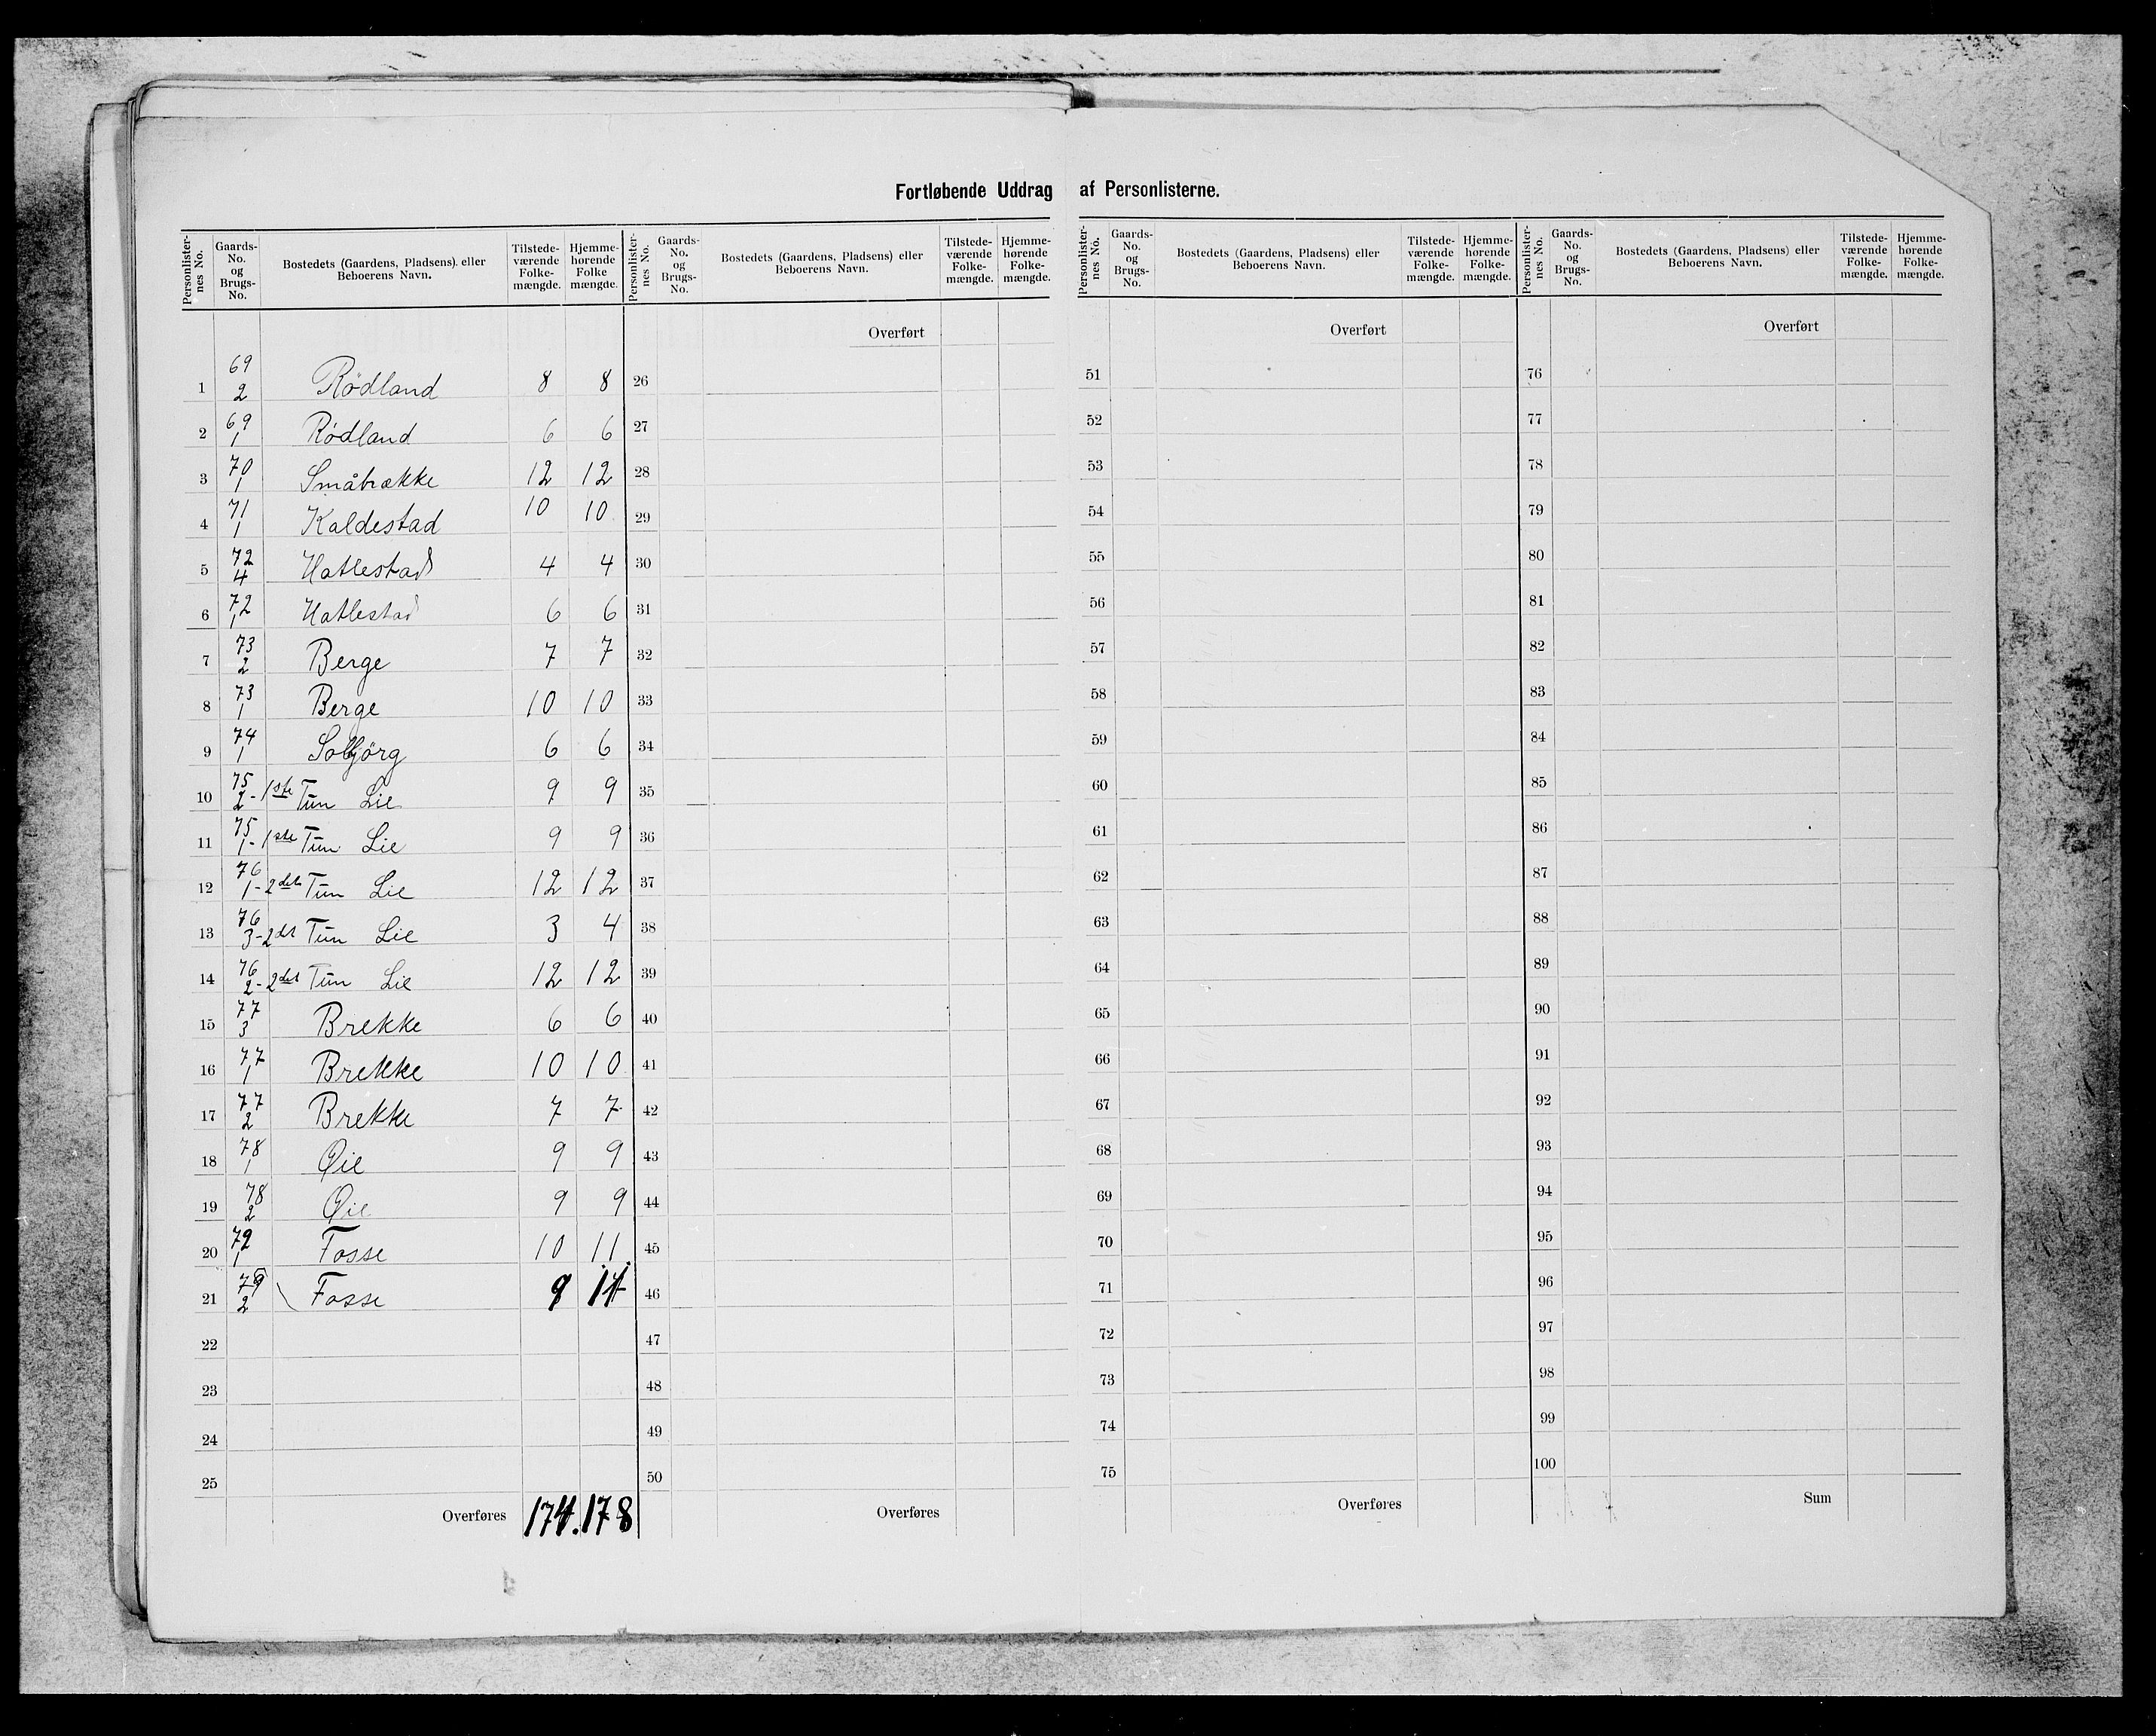 Fortløbende Uddrag af Personlisterne.
Personlister-nes No. | Gaards-No. og Brugs-No. | Bostedets (Gaardens, Pladsens). eller Beboerens Navn. | Tilstede-værende Folke-mængde. | Hjemme-hørende Folke mængde.
1 | 69 2 | Rödland | 8 | 8
2 | 69 1 | Rödland | 6 | 6
3 | 70 1 | Småbrække | 12 | 12
4 | 71 1 | Kaldestad | 10 | 10
5 | 72 4 | Hatlestad | 4 | 4
6 | 72 1 | Hatlestad | 6 | 6
7 | 73 2 | Berge | 7 | 7
8 | 73 1 | Berge | 10 | 10
9 | 74 1 | Solbjörg | 6 | 6
10 | 75 2 - | 1ste Tun Lie | 9 | 9
11 | 75 1 - | 1ste Tun Lie | 9 | 9
12 | 76 1 - | 2det Tun Lie | 12 | 12
13 | 76 3 - | 2det Tun Lie | 3 | 4
14 | 76 2 - | 2det Tun Lie | 12 | 12
15 | 77 3 | Brekke | 6 | 6
16 | 77 1 | Brekke | 10 | 10
17 | 77 2 | Brekke | 7 | 7
18 | 78 1 | Øie | 9 | 9
19 | 78 2 | Øie | 9 | 9
20 | 79 1 | Fosse | 10 | 11
21 | 79 2 | Fosse | 9 | 11
22
23
24
25
Overføres 174. 178
Personlister-nes No. | Gaards-No. og Brugs-No. | Bostedets (Gaardens, Pladsens) eller Beboerens Navn. | Tilstede-værende Folke-mængde. | Hjemme-hørende Folke-mængde.
Overført
26
27
28
29
30
31
32
33
34
35
36
37
38
39
40
41
42
43
44
45
46
47
48
49
50
Overføres
Personlister-nes No. | Gaards-No. og Brugs-No. | Bostedets (Gaardens, Pladsens) eller Beboerens Navn. | Tilstede-værende Folke-mængde. | Hjemme-hørende Folke-mængde.
Overført
51
52
53
54
55
56
57
58
59
60
61
62
63
64
65
66
67
68
69
70
71
72
73
74
75
Overføres
Personlister-nes No. | Gaards-No. og Brugs-No. | Bostedets (Gaardens, Pladsens) eller Beboerens Navn. | Tilstede-værende Folke-mængde. | Hjemme-hørende Folke-mængde.
Overført
76
77
78
79
80
81
82
83
84
85
86
87
88
89
90
91
92
93
94
95
96
97
98
99
100
Sum